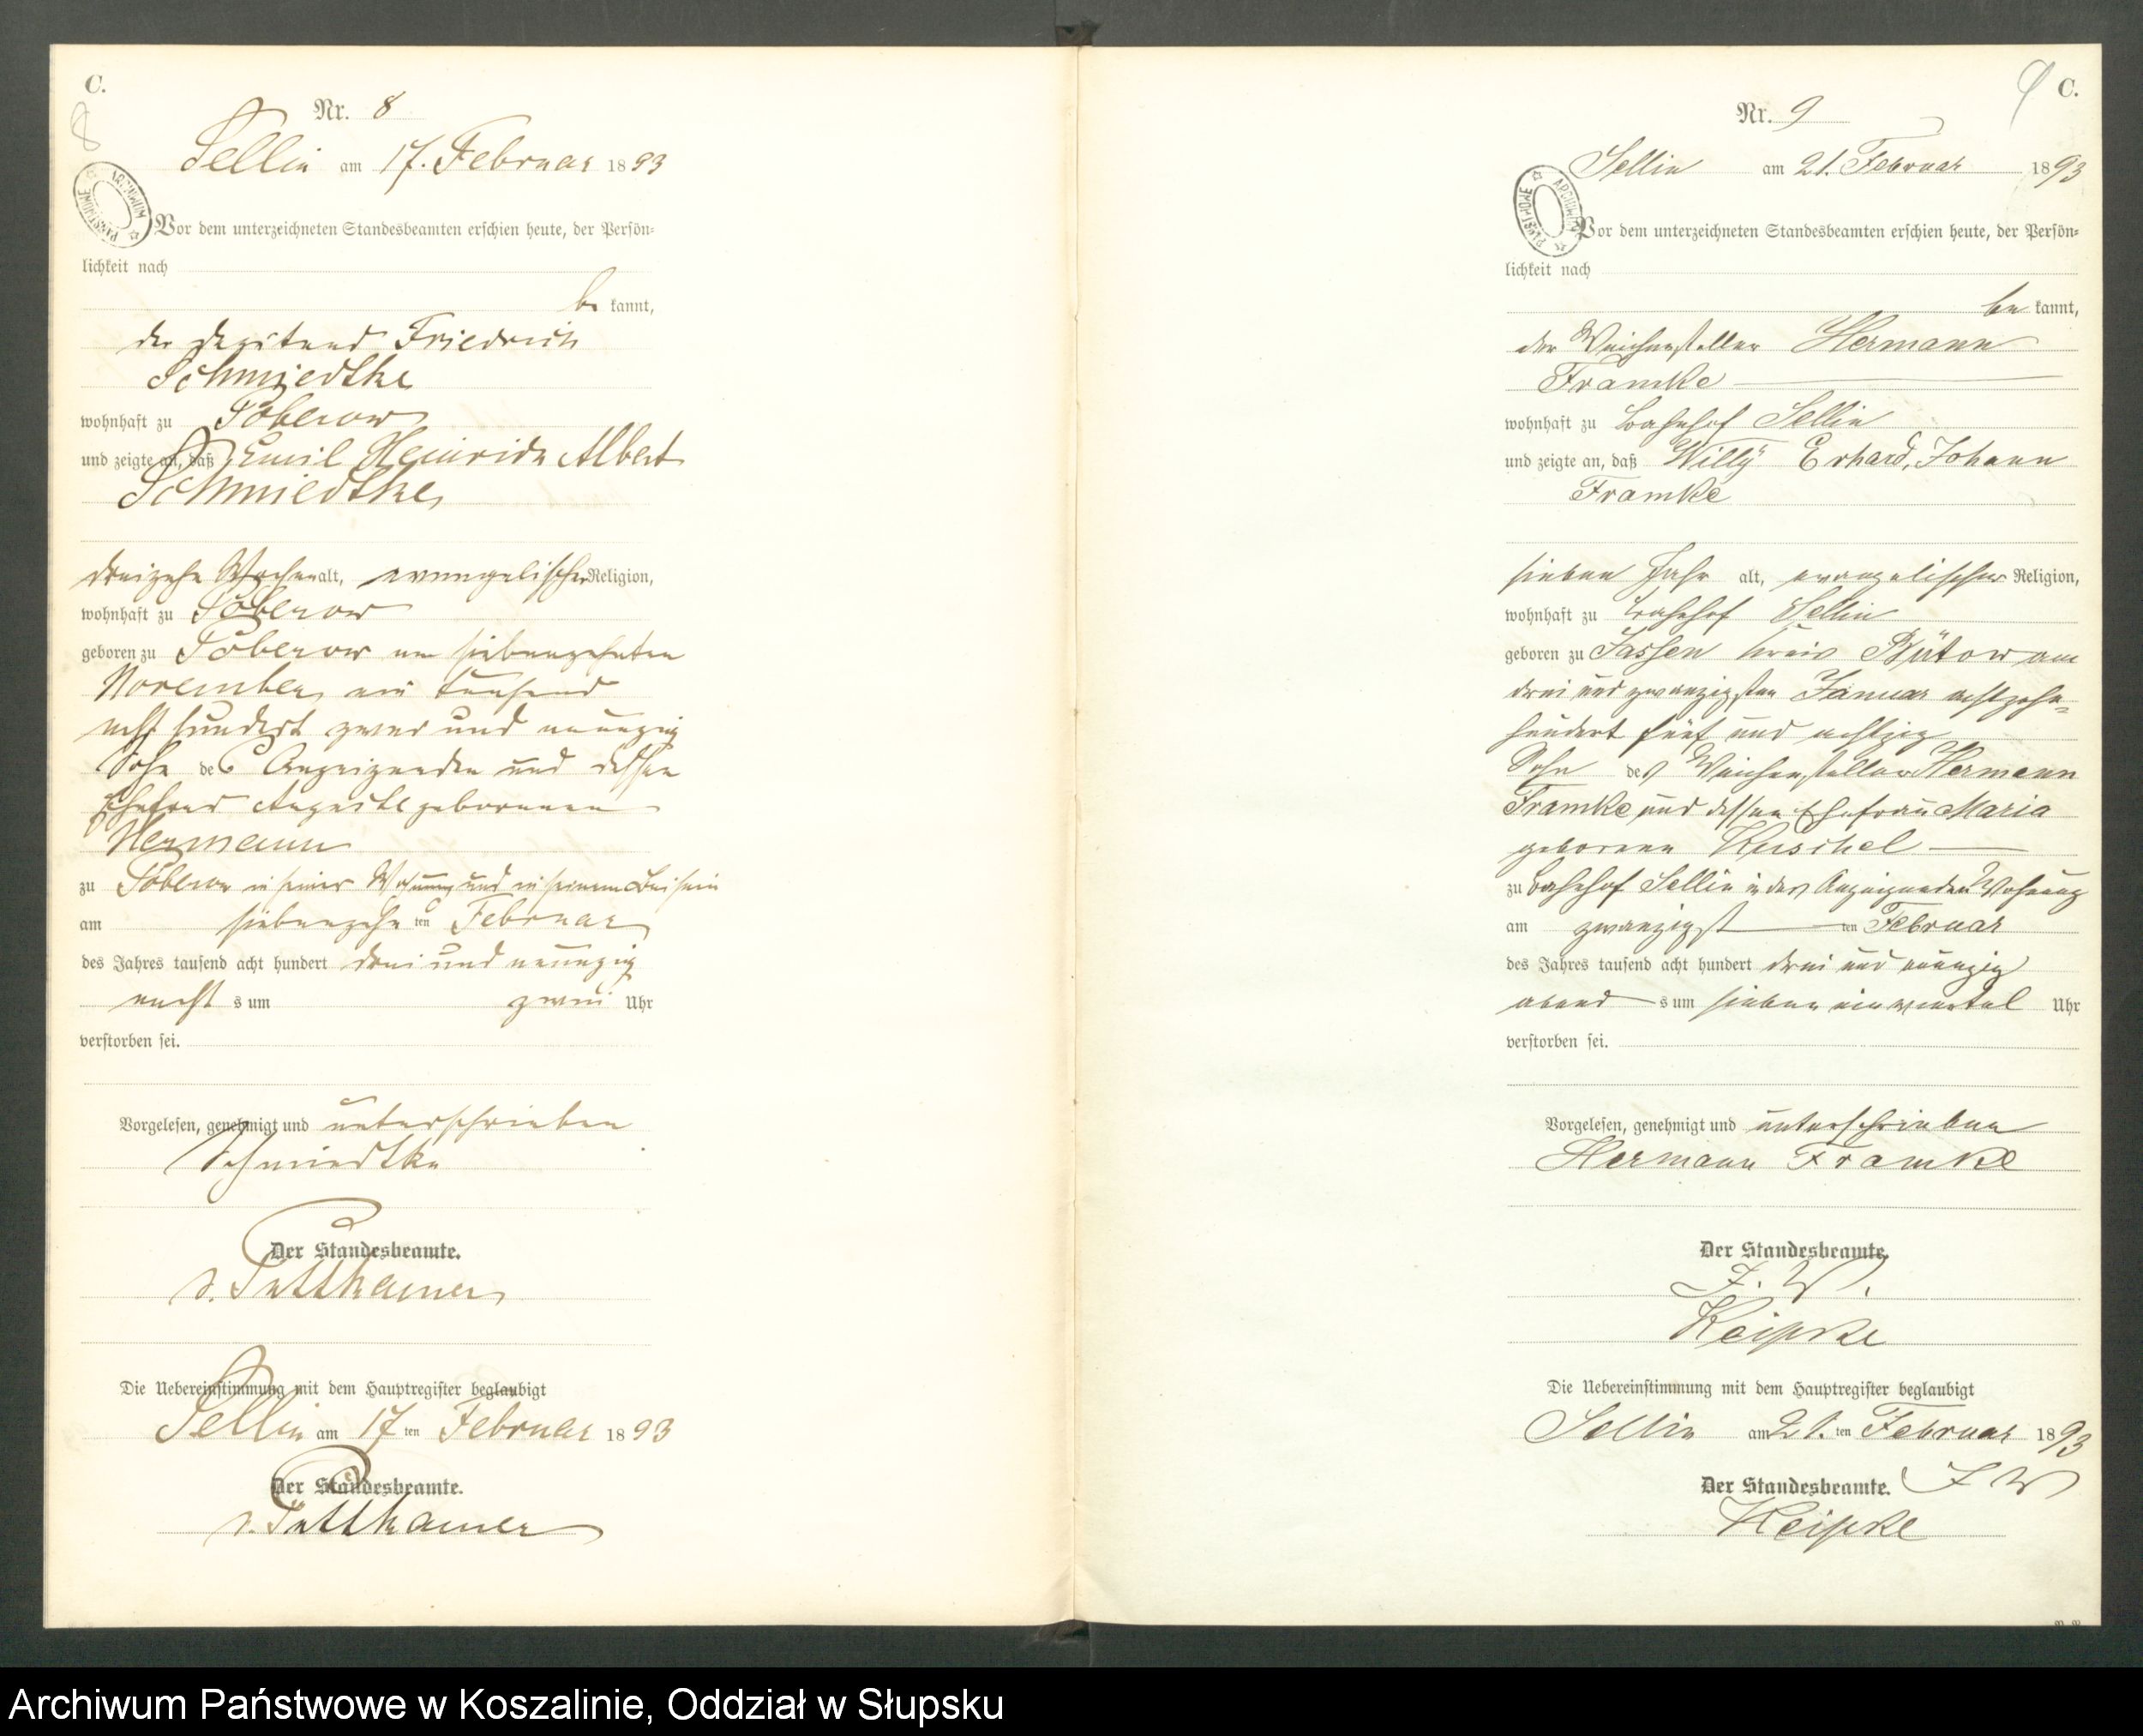 C.
8
Nr. 8
Sellin am 17. Februar 1893
ARCHIWUM PAŃSTWOWE
Vor dem unterzeichneten Standesbeamten erschien heute, der Persön-
lichkeit nach
be kannt,
der Friedrich
Schmiedtke
wohnhaft zu Poberow
und zeigte an, daß Emil Heinrich Albert
Schmiedtke,
dreizehn Wochen alt, evangelischer Religion,
wohnhaft zu Poberow
geboren zu Poberow am siebenzehnten
November ein tausend
acht hundert zwei und neunzig
Sohn des Anzeigenden und dessen
Ehefrau Auguste geborenen
Hermann
zu Poberow in seiner Wohnung und in seinem Beisein
am siebenzehn ten Februar
des Jahres tausend acht hundert drei und neunzig
nacht s um zwei Uhr
verstorben sei.
Vorgelesen, genehmigt und unterschrieben
Schmiedtke
Der Standesbeamte.
v. Puttkamer
Die Uebereinstimmung mit dem Hauptregister beglaubigt
Sellin am 17 ten Februar 1893
Der Standesbeamte.
v. Puttkamer
9 C.
Nr. 9
Sellin am 21. Februar 1893
ARCHIWUM PAŃSTWOWE
Vor dem unterzeichneten Standesbeamten erschien heute, der Persön-
lichkeit nach
be kannt,
der Weichensteller Hermann
Framke
wohnhaft zu Bahnhof Sellin
und zeigte an, daß Willy Erhard, Johann
Framke
sieben Jahr alt, evangelischer Religion,
wohnhaft zu Bahnhof Sellin
geboren zu Jassen Kreis Bütow am
drei und zwanzigsten Januar achtzehn-
hundert fünf und achtzig
Sohn des Weichensteller Hermann
Framke und dessen Ehefrau Maria
geborene Kuschel
zu Bahnhof Sellin in des Anzeigenden Wohnung
am zwanzigst ten Februar
des Jahres tausend acht hundert drei und neunzig
abend s um sieben ein viertel Uhr
verstorben sei.
Vorgelesen, genehmigt und unterschrieben
Hermann Framke
Der Standesbeamte.
J. V.
Keipke
Die Uebereinstimmung mit dem Hauptregister beglaubigt
Sellin am 21. ten Februar 1893
Der Standesbeamte. J V
Keipke
Archiwum Państwowe w Koszalinie, Oddział w Słupsku